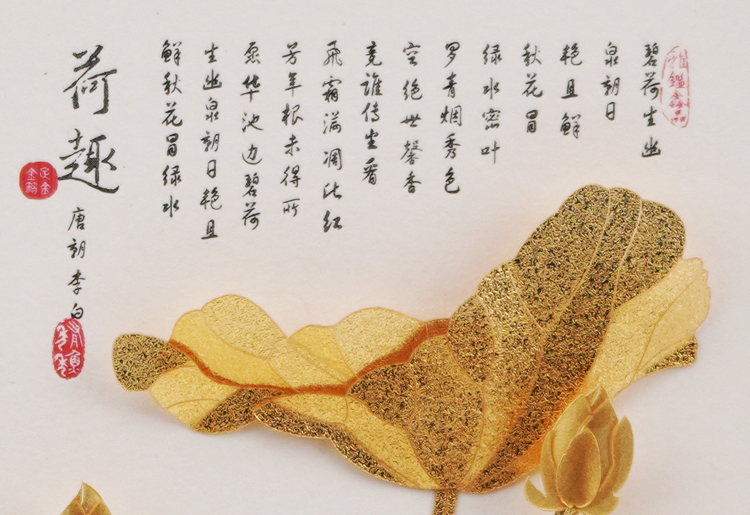 碧荷生幽
泉朝日
艳且鲜
秋花冒
绿水密叶
罗青烟秀色
空绝世馨香
竟谁传坐看
飞霜满凋此红
芳年根未得所
愿华池边碧荷
生幽泉朝日艳且
鲜秋花冒绿水
荷趣
唐朝李白
足金
金箔
有鱼
年年